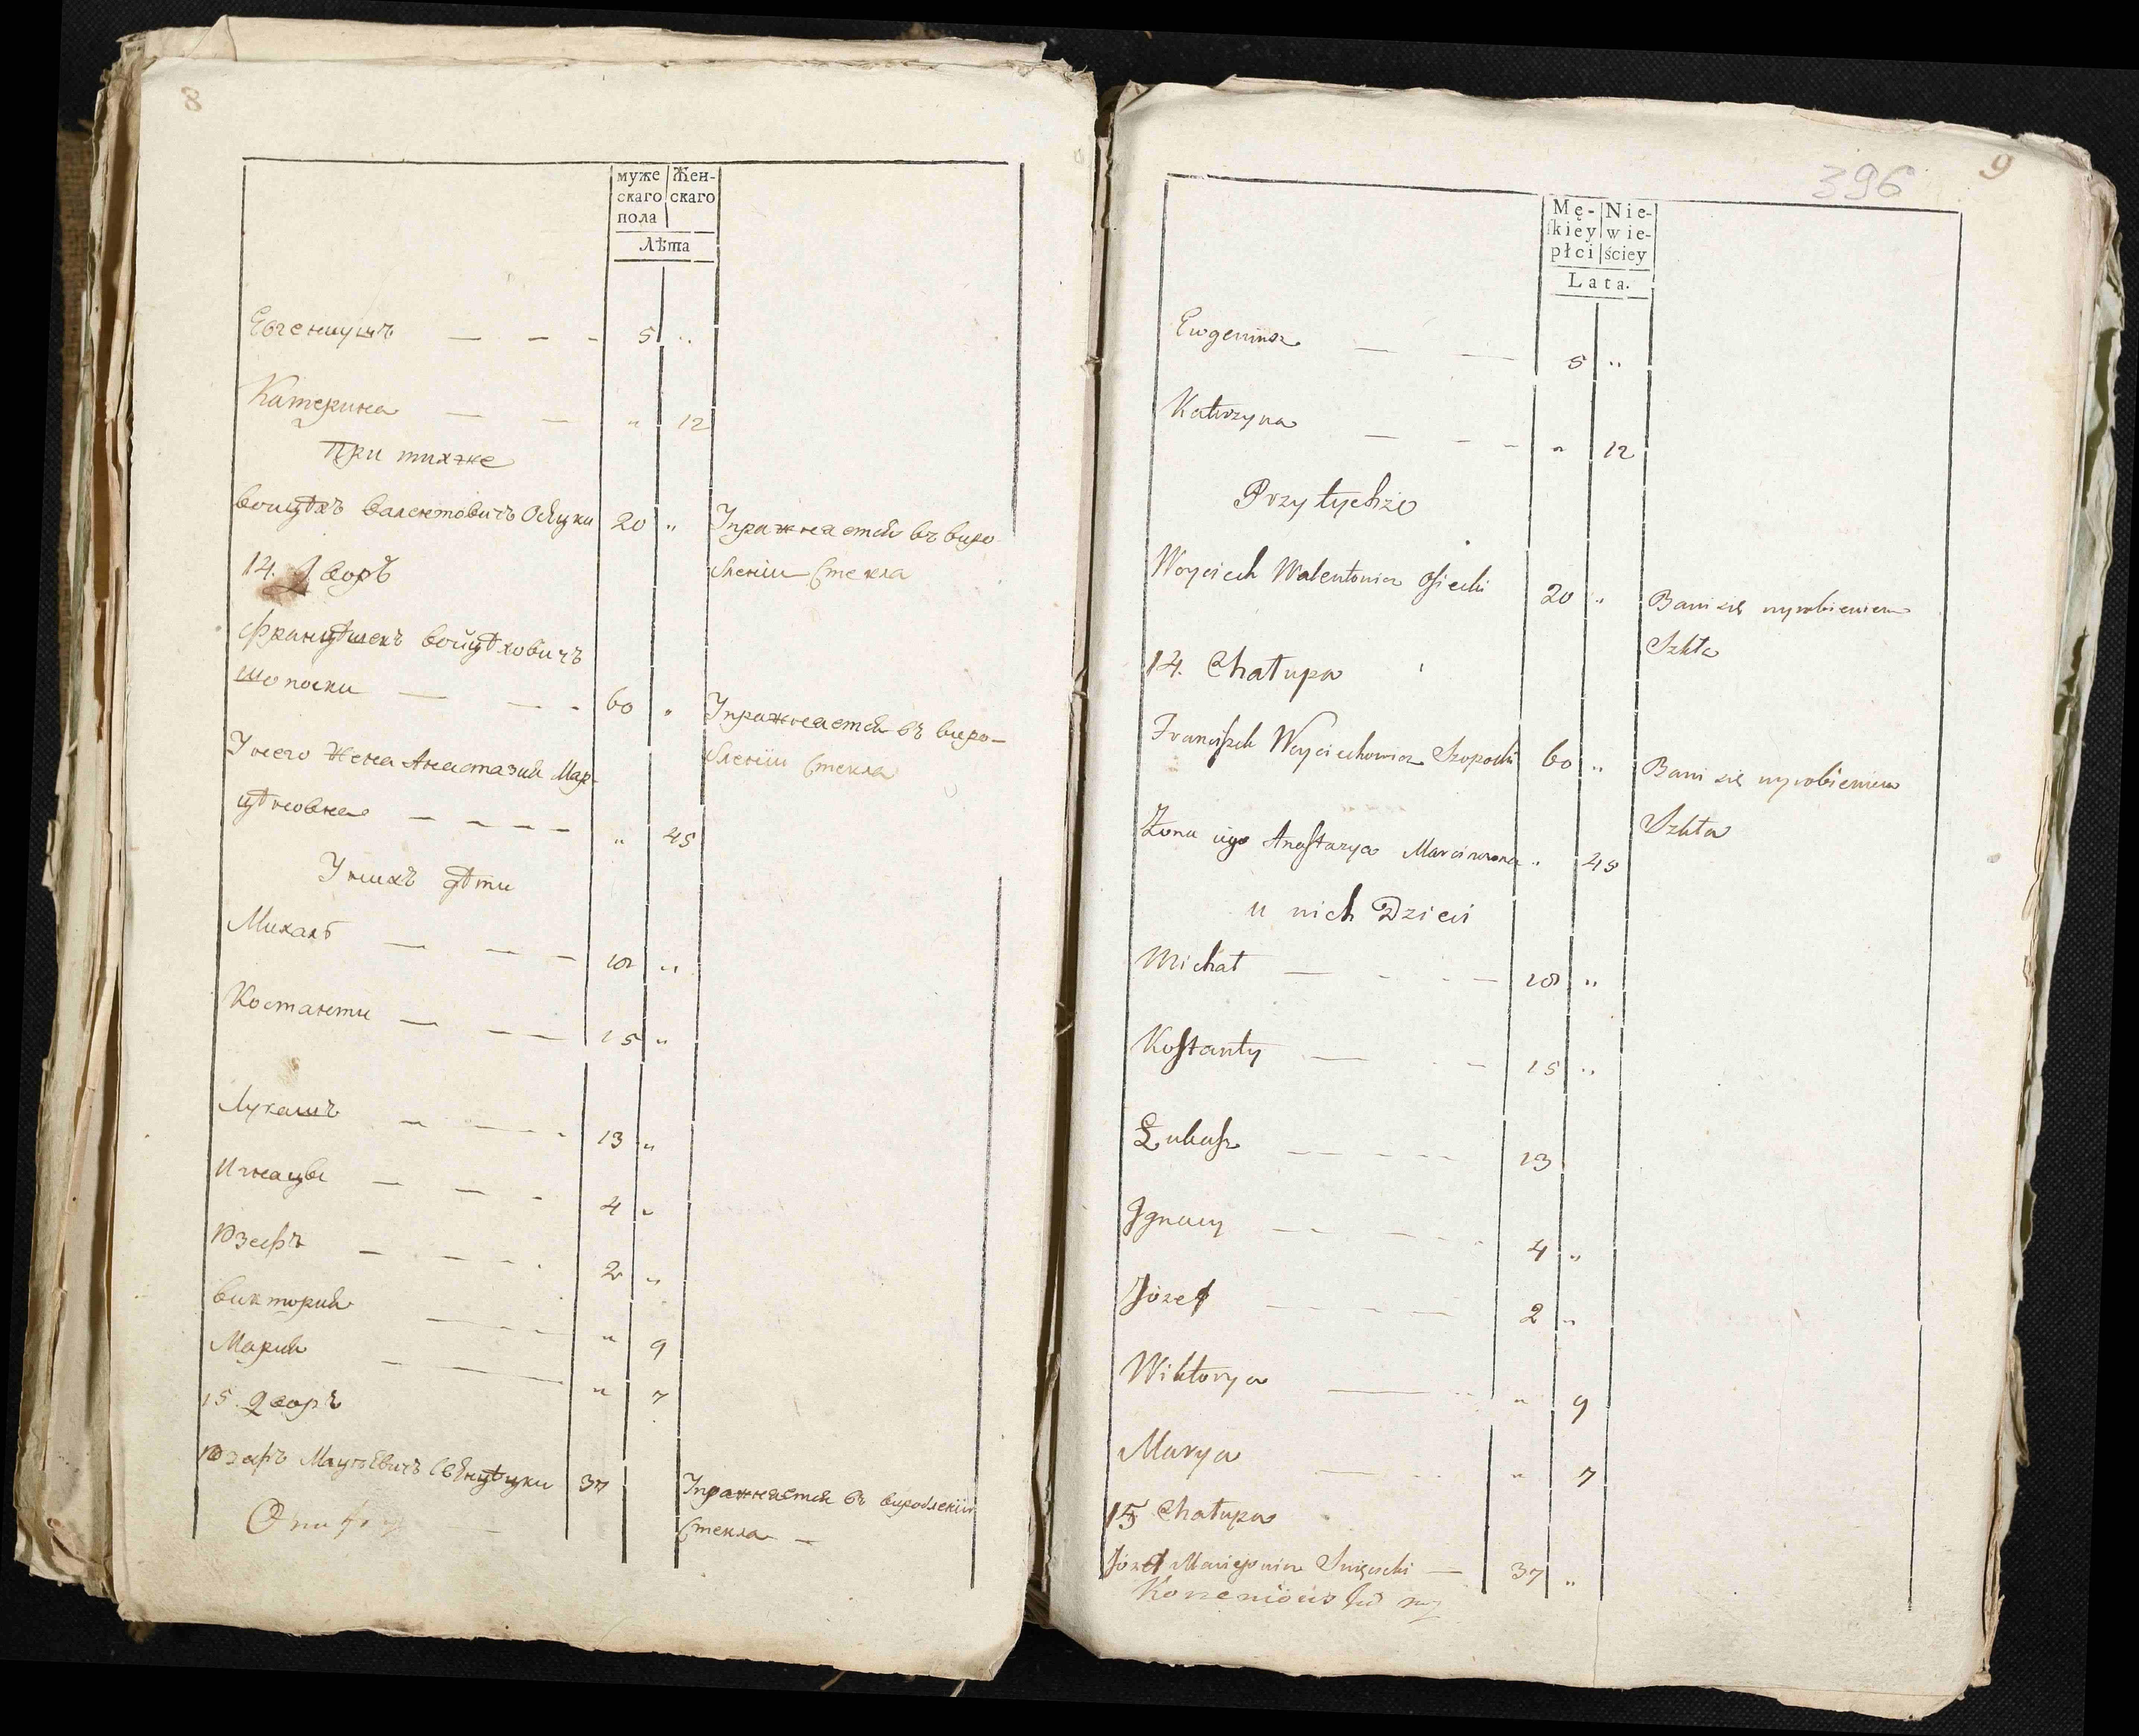 8
муже скаго пола
Жен- скаго
Лѣта
Евгениушъ — — - 5 „
Катерина — — „ 12
При тихже
Войцѣхъ Валентовичъ Осѣцки 20 „ Упражнается въ выро
бленіи Стекла
14. Дворъ
Францѣшекъ Войцѣховичъ
Шопоски — — - 60 „ Упражнается въ выро-
бленіи Стекла
У него Жена Анастазия Мар-
цѣновна — — — — „ 45
У нихъ дѣти
Михалъ — — — 18 „
Костанты — — — 15 „
Лукашъ — — - 13 „
Игнацы — — - 4 „
Юзефъ — — - 2 „
Викторыя — — „ 9
Марыя — — „ 7
15. Дворъ
Юзефъ Мацѣевичъ Свѣнцѣцки 37 Упражнается въ выробленіи
Стекла —
396
9
Mę-
skiey
płci
Nie-
wie-
ściey
Lata.
Ewgeniusz — — 5 „
Katarzyna — - - „ 12
Przy tychże
Woyciech Walentowicz Osiecki 20 „ Bawi się wyrobieniem
Szkła
14. Chałupa
Franciszek Woyciechowicz Szoposki 60 „ Bawi się wyrobieniem
Szkła
Żona iego Anastazya Marcinowna „ 45
u nich Dzieci
Michał — - - — 18 „
Kostanty — - - 15 „
Łukasz — — - — 13
Ignacy — — - - 4 „
Józef — - - — 2 „
Wiktorya — - - „ 9
Marya — - - „ 7
15 Chałupa
Józef Maciejowicz Swięcicki — 37 „